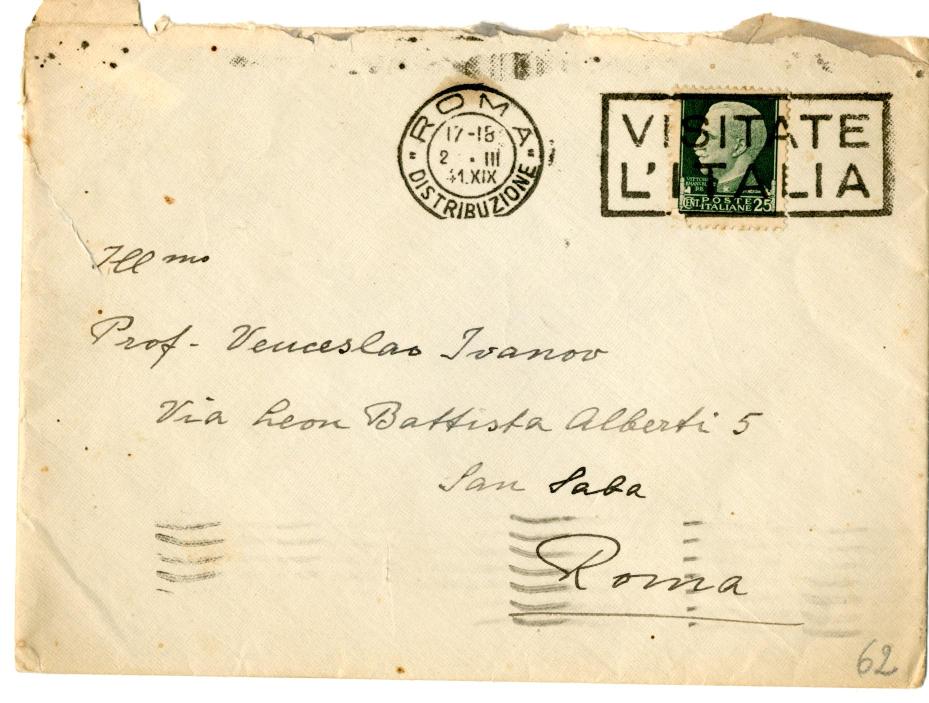 ROMA
17-18
2 . III
41.XIX
"DISTRIBUZIONE"
VISITATE
L'ITALIA
VITTORIO
EMANUELE
RE
CENT. POSTE
ITALIANE 25
Ill mo
Prof - Venceslao Ivanov
Via Leon Battista Alberti 5
San Saba
Roma
62